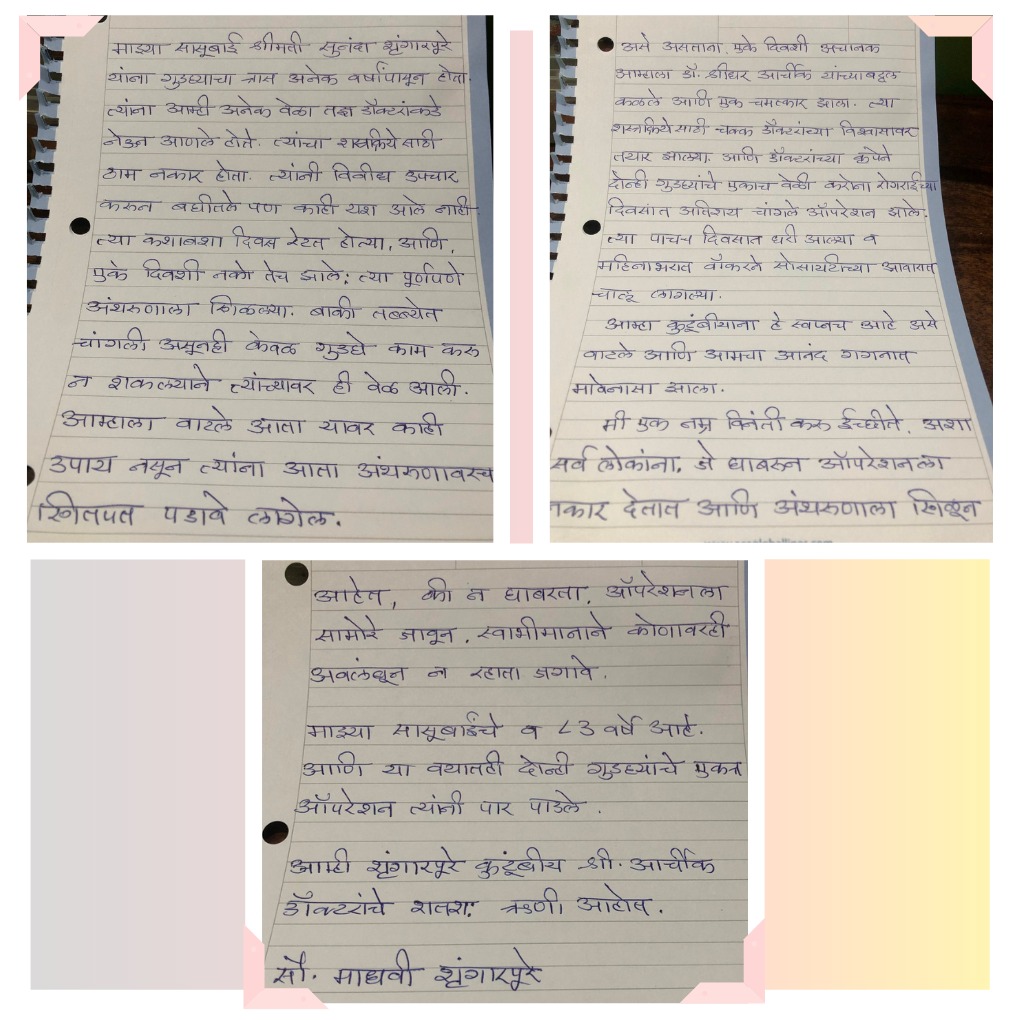 माझ्या सासूबाई श्रीमती सुनंदा शृंगारपूरे
यांना गुडघ्याचा त्रास अनेक वर्षांपासून होता.
त्यांना आम्ही अनेक वेळा तज्ञ डॉक्टरांकडे
नेऊन आणले होते. त्यांचा शस्त्रक्रियेसाठी
ठाम नकार होता. त्यांनी विवीध उपचार
करुन बघीतले पण काही यश आले नाही
त्या कशाबशा दिवस रेटत होत्या, आणि,
एके दिवशी नको तेच झाले; त्या पूर्णपणे
अंथरुणाला खिळल्या. बाकी तब्ब्येत
चांगली असूनही केवळ गुडघे काम करु
न शकल्याने त्यांच्यावर ही वेळ आली.
आम्हाला वाटले आता यावर काही
उपाय नसून त्यांना आता अंथरुणावरच
खितपत पडावे लागेल.
असे असताना, एके दिवशी अचानक
आम्हाला डॉ. श्रीधर आर्चीक यांच्याबद्दल
कळले आणि एक चमत्कार झाला. त्या
शस्त्रक्रियेसाठी चक्क डॉक्टरांच्या विश्वासावर
तयार झाल्या. आणि डॉक्टरांच्या कृपेने
दोन्ही गुडघ्यांचे एकाच वेळी करोना रोगराईच्या
दिवसात अतिशय चांगले ऑपरेशन झाले.
त्या पाचव्या दिवसात घरी आल्या व
महिनाभरात वॉकरने सोसायटीच्या आवारात
चालू लागल्या.
आम्हा कुटूंबीयाना हे स्वप्नच आहे असे
वाटले आणि आमचा आनंद गगनात
मावेनासा झाला.
मी एक नम्र विनंती करु ईच्छीते, अशा
सर्व लोकांना, जे घाबरुन ऑपरेशनला
नकार देतात आणि अंथरुणाला खिळून
आहेत, की न घाबरता, ऑपरेशनला
सामोरे जावून, स्वाभीमानाने कोणावरही
अवलंबून न रहाता जगावे.
माझ्या सासूबाईंचे व ८३ वर्षे आहे.
आणि या वयातही दोन्ही गुडघ्यांचे एकत्र
ऑपरेशन त्यांनी पार पाडले.
आम्ही शृंगारपूरे कुटूंबीय श्री. आर्चीक
डॉक्टरांचे शतशः ऋणी आहोत.
सौ. माधवी शृंगारपूरे